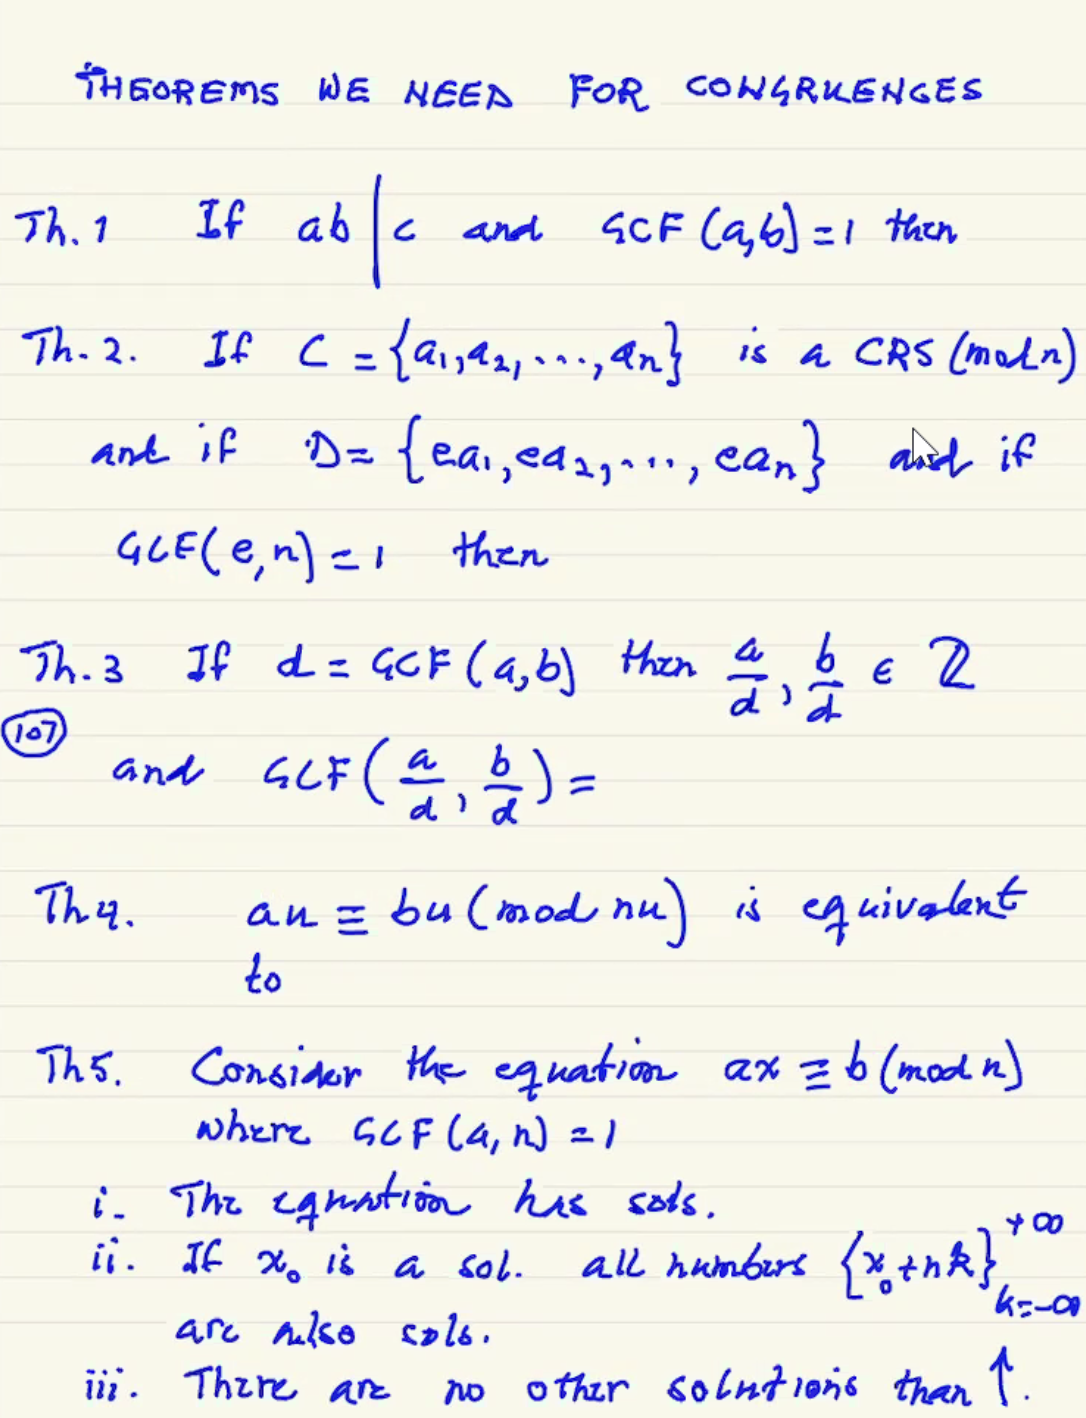 THEOREMS WE NEED FOR CONGRUENCES
Th. 1 If ab | c and GCF (a,b) = 1 then
Th. 2. If C = {a₁, a₂, ..., aₙ} is a CRS (mod n)
and if D = {ea₁, ea₂, ..., eaₙ} and if
GCF(e,n) = 1 then
Th. 3 If d = GCF (a,b) then a/d, b/d ∈ ℤ
107
and GCF(a/d, b/d) =
Th 4. au ≡ bu (mod nu) is equivalent
to
Th 5. Consider the equation ax ≡ b (mod n)
where GCF (a, n) = 1
i. The equation has sols.
ii. If x₀ is a sol. all numbers {x₀+nk}^{+∞}_{k=-∞}
are also sols.
iii. There are no other solutions than ↑.